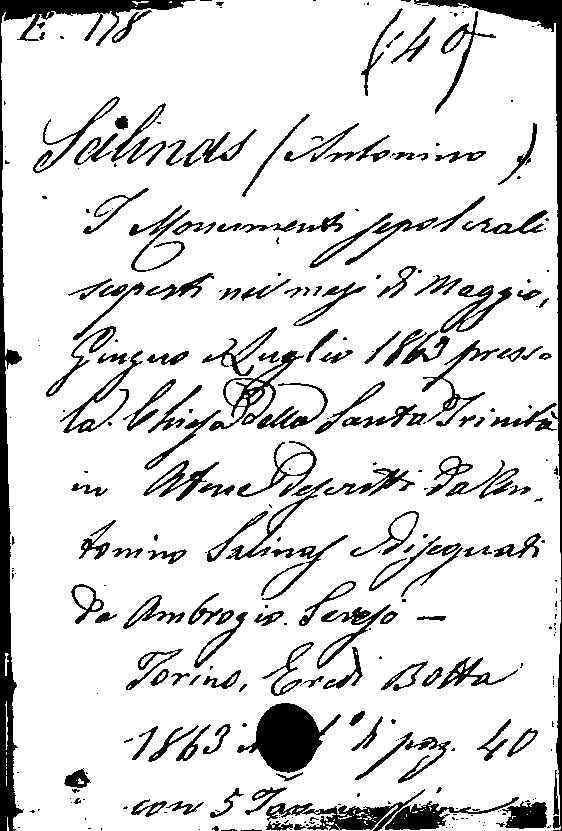 E. 178
(40)
Salinas (Antonino)
I Monumenti sepolcrali
scoperti nei mesi di Maggio,
Giugno e Luglio 1863 presso
la Chiesa della Santa Trinità
in Atene descritti da An-
tonino Salinas e disegnati
da Ambrogio Serejo —
Torino, Eredi Botta
1863 di pag. 40
con 5